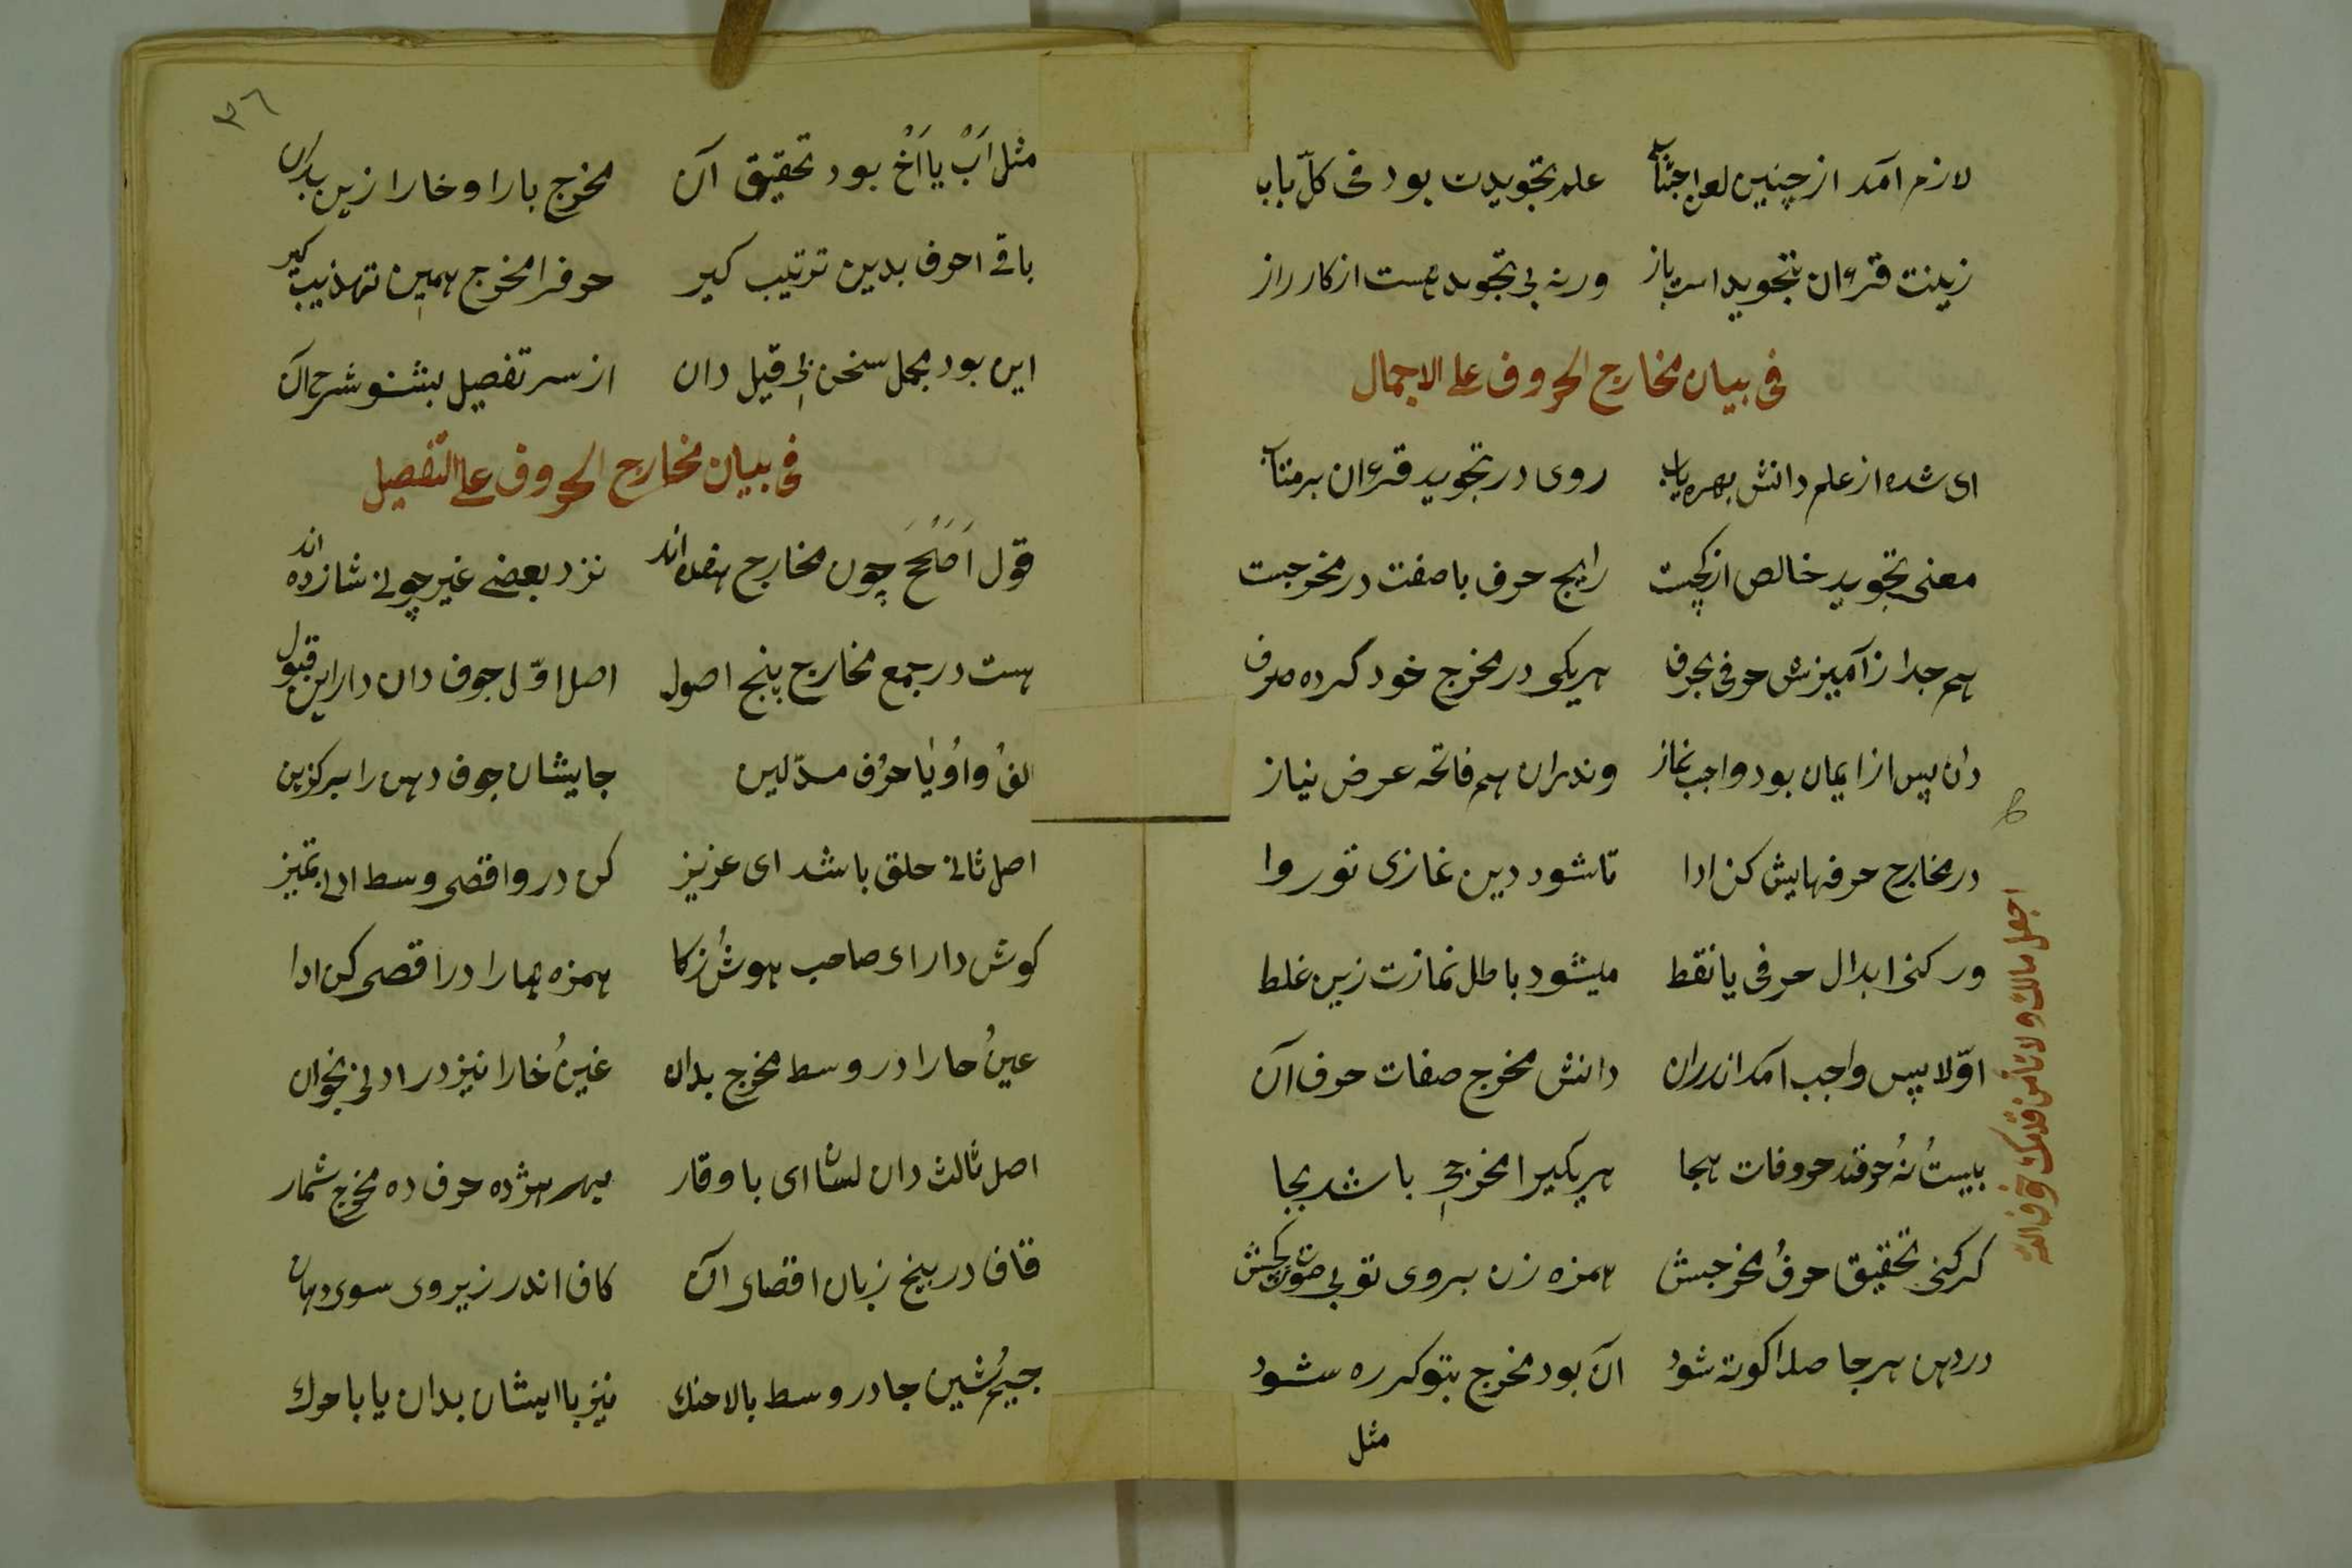 لازم آمد از چنین لحن اجتناب علم تجویدت بود فی کلّ باب
زینت قرءان بتجوید است باز ورنه بی تجوید هست از کار راز
فی بیان مخارج الحروف علی الاجمال
ای شده از علم دانش بهره یاب روی در تجوید قرءان برمتاب
معنی تجوید خالص از کچیت رایج حرف باصفت در مخرجیت
هم جدا ز آمیزش حرفی بحرف هریکی در مخرج خود کرده صرف
دان پس از ایمان بود واجب نماز وندران هم فاتحه عرض نیاز
در مخارج حرفهایش کن ادا تا شود دین غازی تو روا
ور کنی ابدال حرفی یا نقط میشود باطل نمازت زین غلط
اوّلا پس واجب آمد اندران دانش مخرج صفات حرف آن
بیستُ نُه حرفند حروفات هجا هریکیرا مخرجی باشد بجا
کر کنی تحقیق حرفُ مخرجش همزه زن بروی تو بی صوت کش
در دهن هرجا صدا کوته شود آن بود مخرج بتو کرره شود
مثل
اجعل مالك ولا تأمن
٣٦
مثل اَبْ یا اَخْ بود تحقیق آن مخرج بارا و خارا زین بدان
باقی احرف بدین ترتیب کیر حرفرا مخرج همین تهذیب کیر
این بود مجمل سخن بی قیل دان از سر تفصیل بشنو شرح آن
فی بیان مخارج الحروف علی التفصیل
قول اَصَلَحَ چون مخارج هفده اند نزد بعضی غیر چونی شانزده اند
هست در جمع مخارج پنج اصول اصل اوّل جوف دان دار این قبول
الفُ واوُ یا حرُف مدّ لین جایشان جوف دهن را برکزین
اصل ثانی حلق باشد ای عزیز کن درو اقصی وسط ادنی تمیز
کوش دار ای صاحب هوشُ زکا همزه هارا در اقصی کن ادا
عینُ حارا در وسط مخرج بدان غینُ خارا نیز در ادنی بخوان
اصل ثالث دان لسان ای باوقار بهر هژده حرف ده مخرج شمار
قاف در بیخ زبان اقصای آن کاف اندر زیر وی سوی دهان
جیمُ شین جا در وسط بالا حنك نیز با ایشان بدان یا با حرك